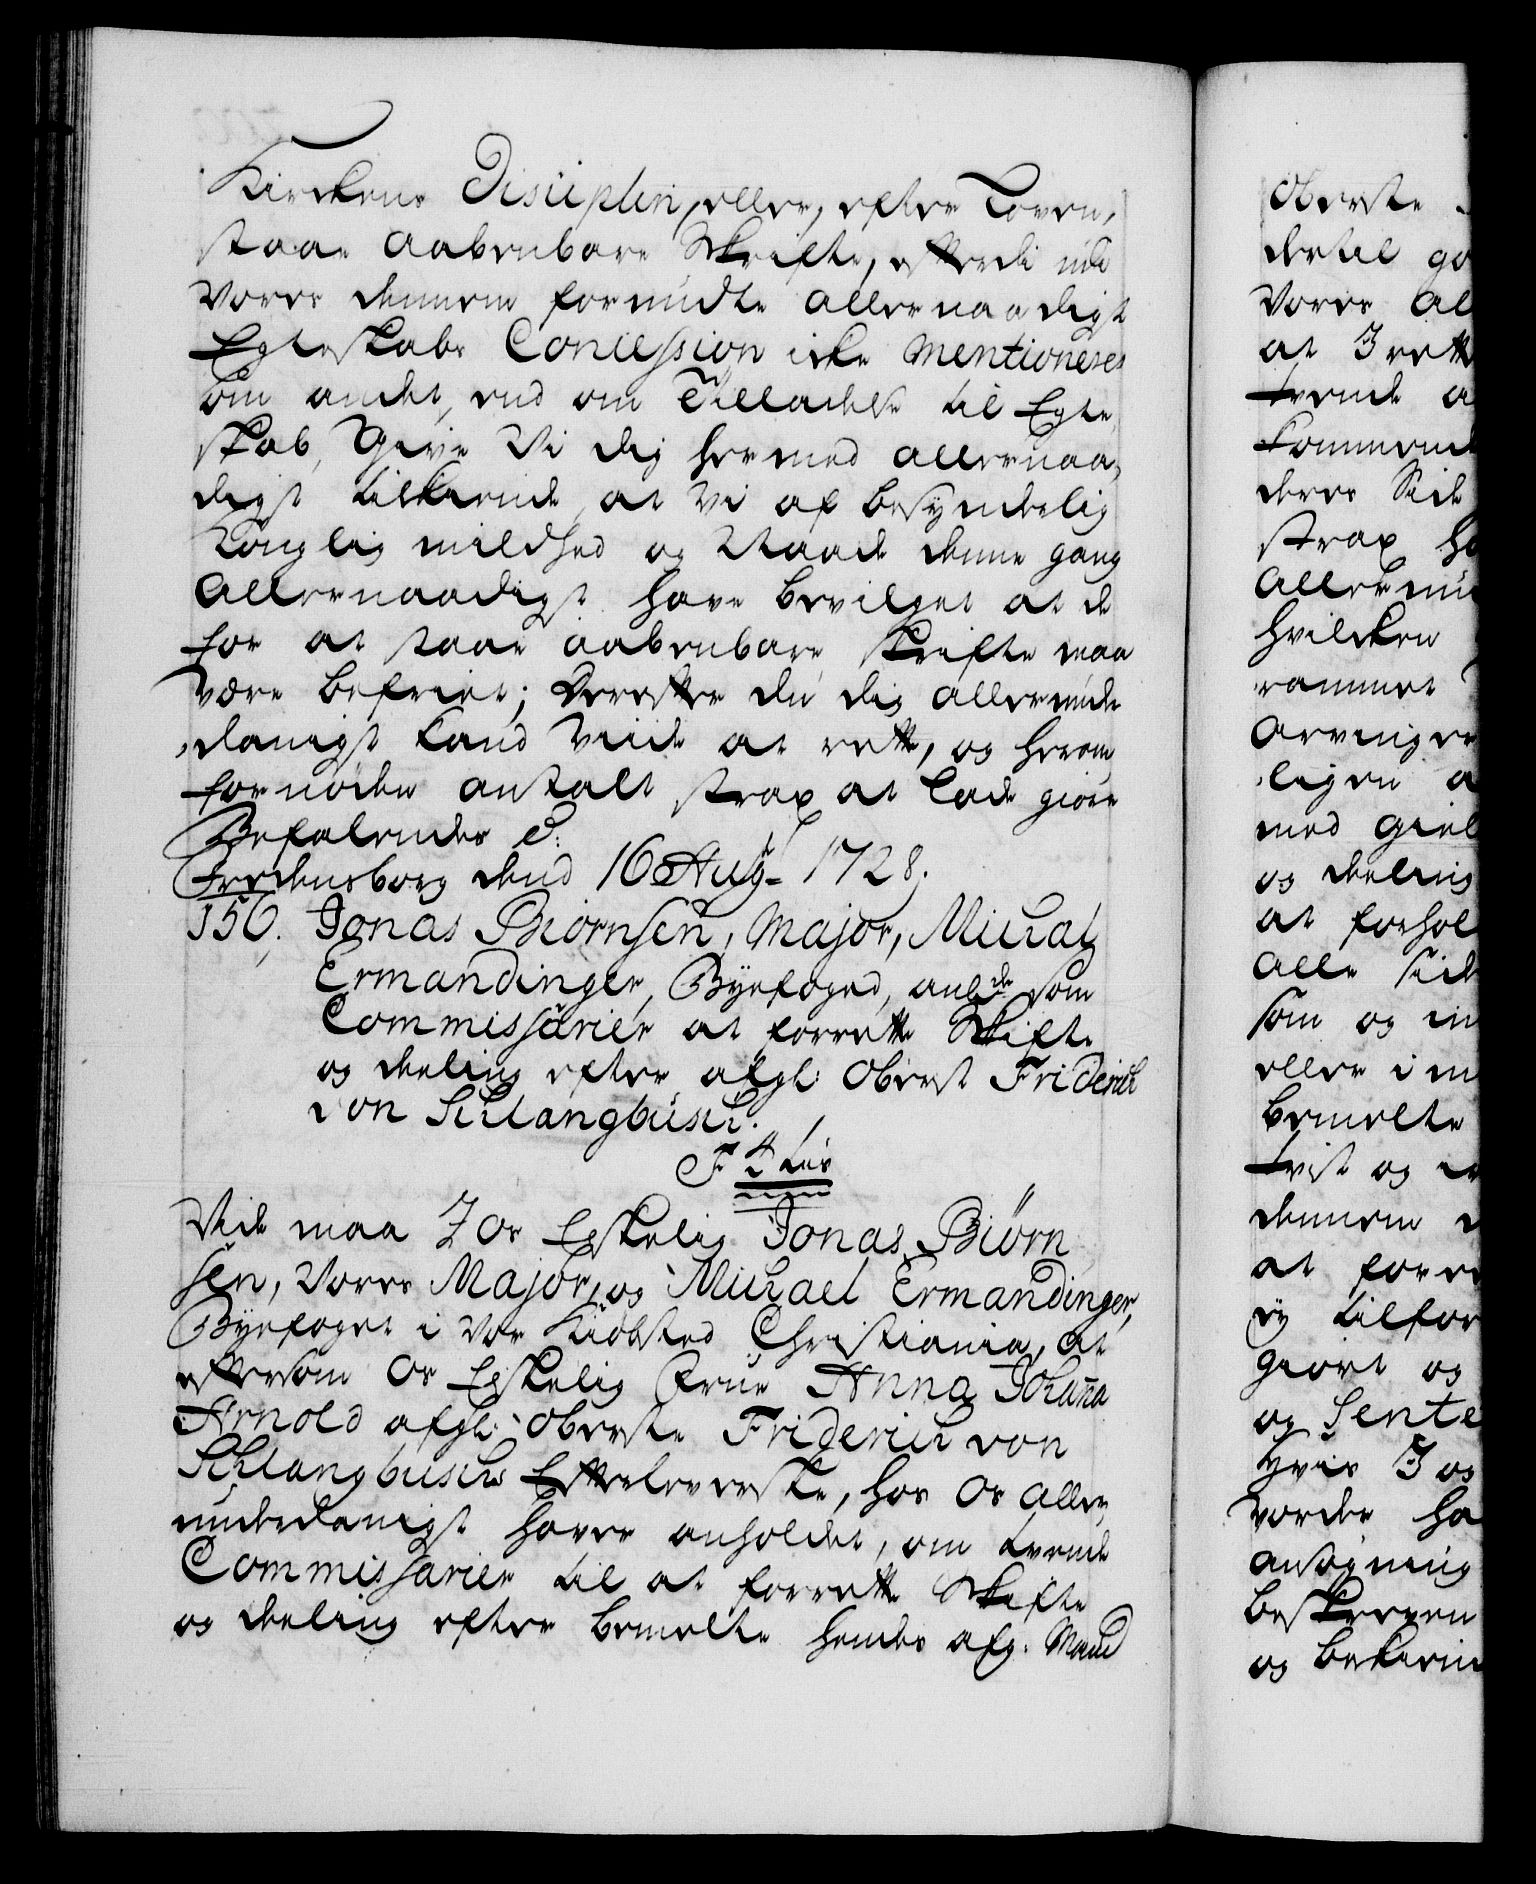 Kirckens Disciplin, eller, efter Loven,
staae aabenbare Skrifte, efterdi udi
Vores dennem forundte allernaadigst
Egteskabs Concession icke mentioneres
om andet, end om Tilladelse til Egte,
skab, Give Vi dig hermed allernaa,
digst tilkiende, at Vi af besynderlig
Konglig mildhed og Naade denne gang
allernaadigst have bevilget at de
for at staae aabenbare Skrifte maa
være befriet; Derefter du dig allerunder
danigst kand viide at rette, og herom
fornøden anstalt strax at lade giøre
Befalendes &:
Fredensborg dend 16 Augti 1728.
150. Jonas Biørnsen, Major, Michael
Ermandinger, Byefoged, anlde som
Commissarier at forrette Skifte
og deeling efter afgl: Obrest Friderich
von Schlangbusch.
F 4tus
Vide maa I Os Elskelig Jonas Biørn
sen, Vores Major, og Michael Ermandinger,
Byefoget i Vor Kiøbsted Christiania, at
eftersom Os Elskelig Frue Anna Johanna
Arnold afgl: Obreste Friderich von
Schlangbusches Efterleverske, hos Os aller,
underdanigst haver anholdet, om tvende
Commissarier til at forrette Skifte
og deeling efter bemelte hendes afg. Mand
Obreste
dertil go
Vores al
at I rette
tvende a
kommende
deres Side
strax ha
allerun
hvilcken
rammet
Arvinger
ligen a
med giel
og deeling
at forhol
alle Side
som og im
eller i m
bemelte
tvist og
dennem
at forre
ey tilfor
giort og
og Sente
Hvis I og
vorder ha
ansøgning
beskreven
og bekiend